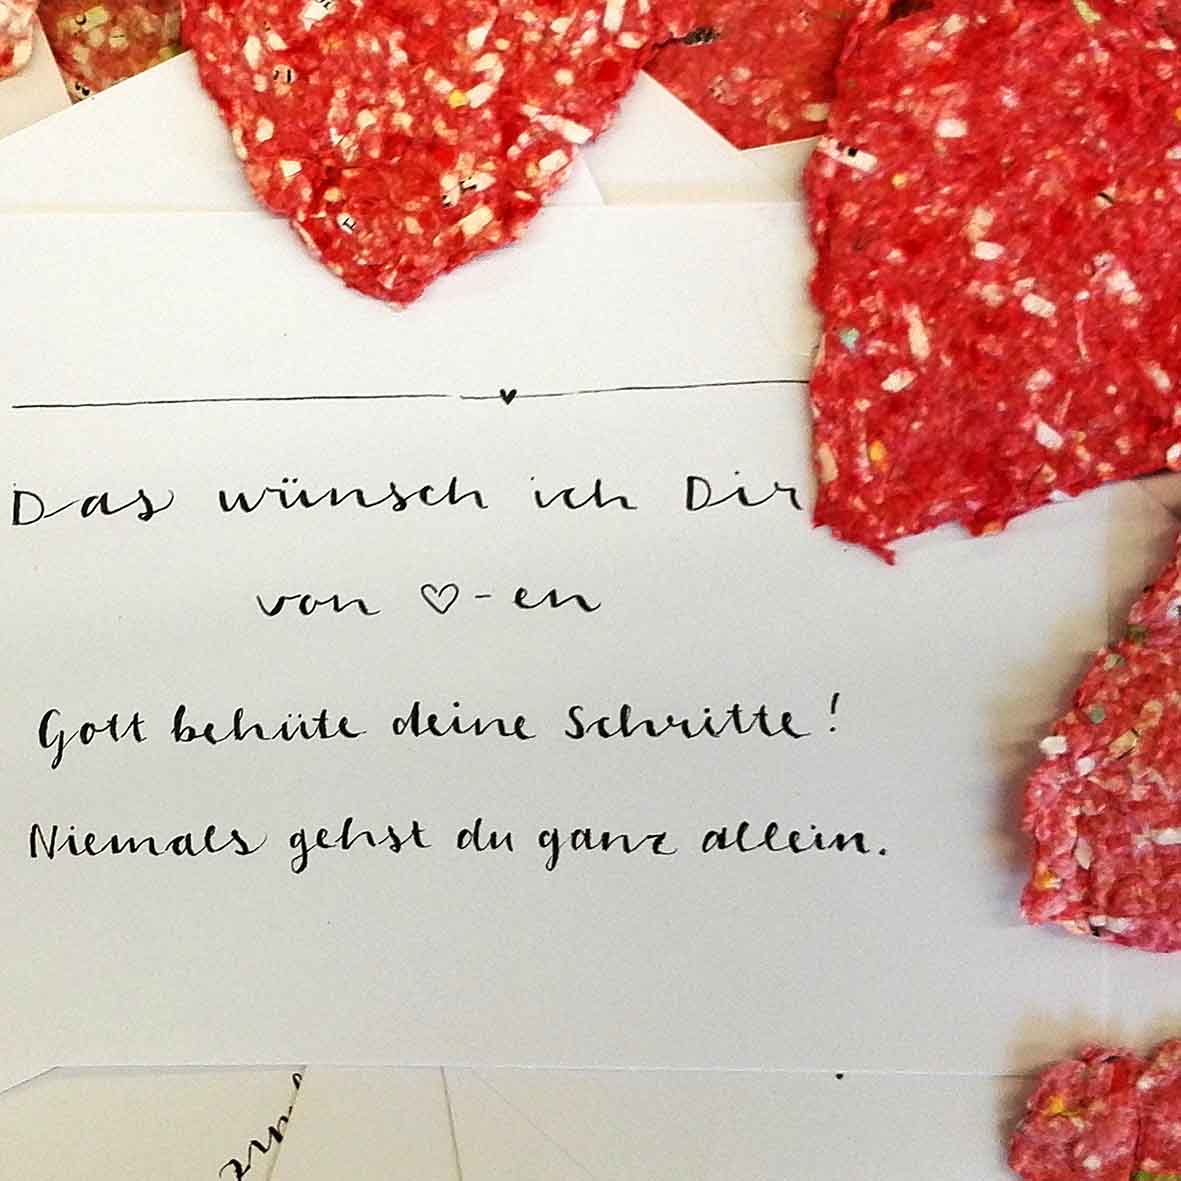 Das wünsch ich Dir
von ♡-en
Gott behüte deine Schritte!
Niemals gehst du ganz allein.